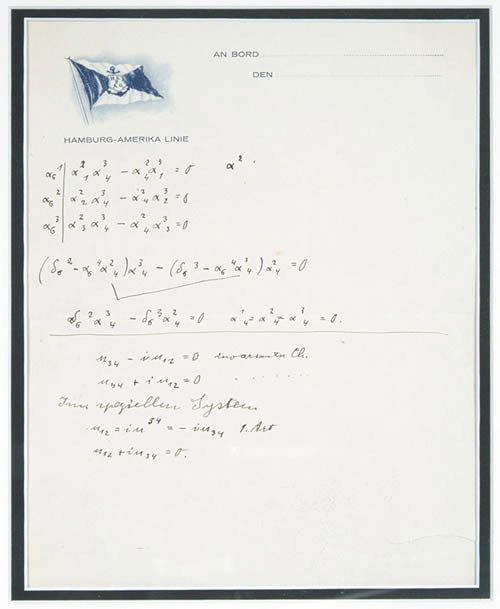 AN BORD
DEN
HAMBURG-AMERIKA LINIE
α₆¹ | α₁² α₄³ − α₄² α₁³ = 0 α²
α₆² | α₂² α₄³ − α₄² α₂³ = 0
α₆³ | α₃² α₄³ − α₄² α₃³ = 0
(δ₆² − α₆⁴ α₄²) α₄³ − (δ₆³ − α₆⁴ α₄³) α₄² = 0
δ₆² α₄³ − δ₆³ α₄² = 0 α₄¹ = α₄² = α₄³ = 0.
u₃₄ − i u₁₂ = 0 Ch.
u₃₄ + i u₁₂ = 0 . . . . . .
Im speziellen System
u₁₂ = i u³⁴ = − i u₃₄ 1. Art
u₁₂ + i u₃₄ = 0.